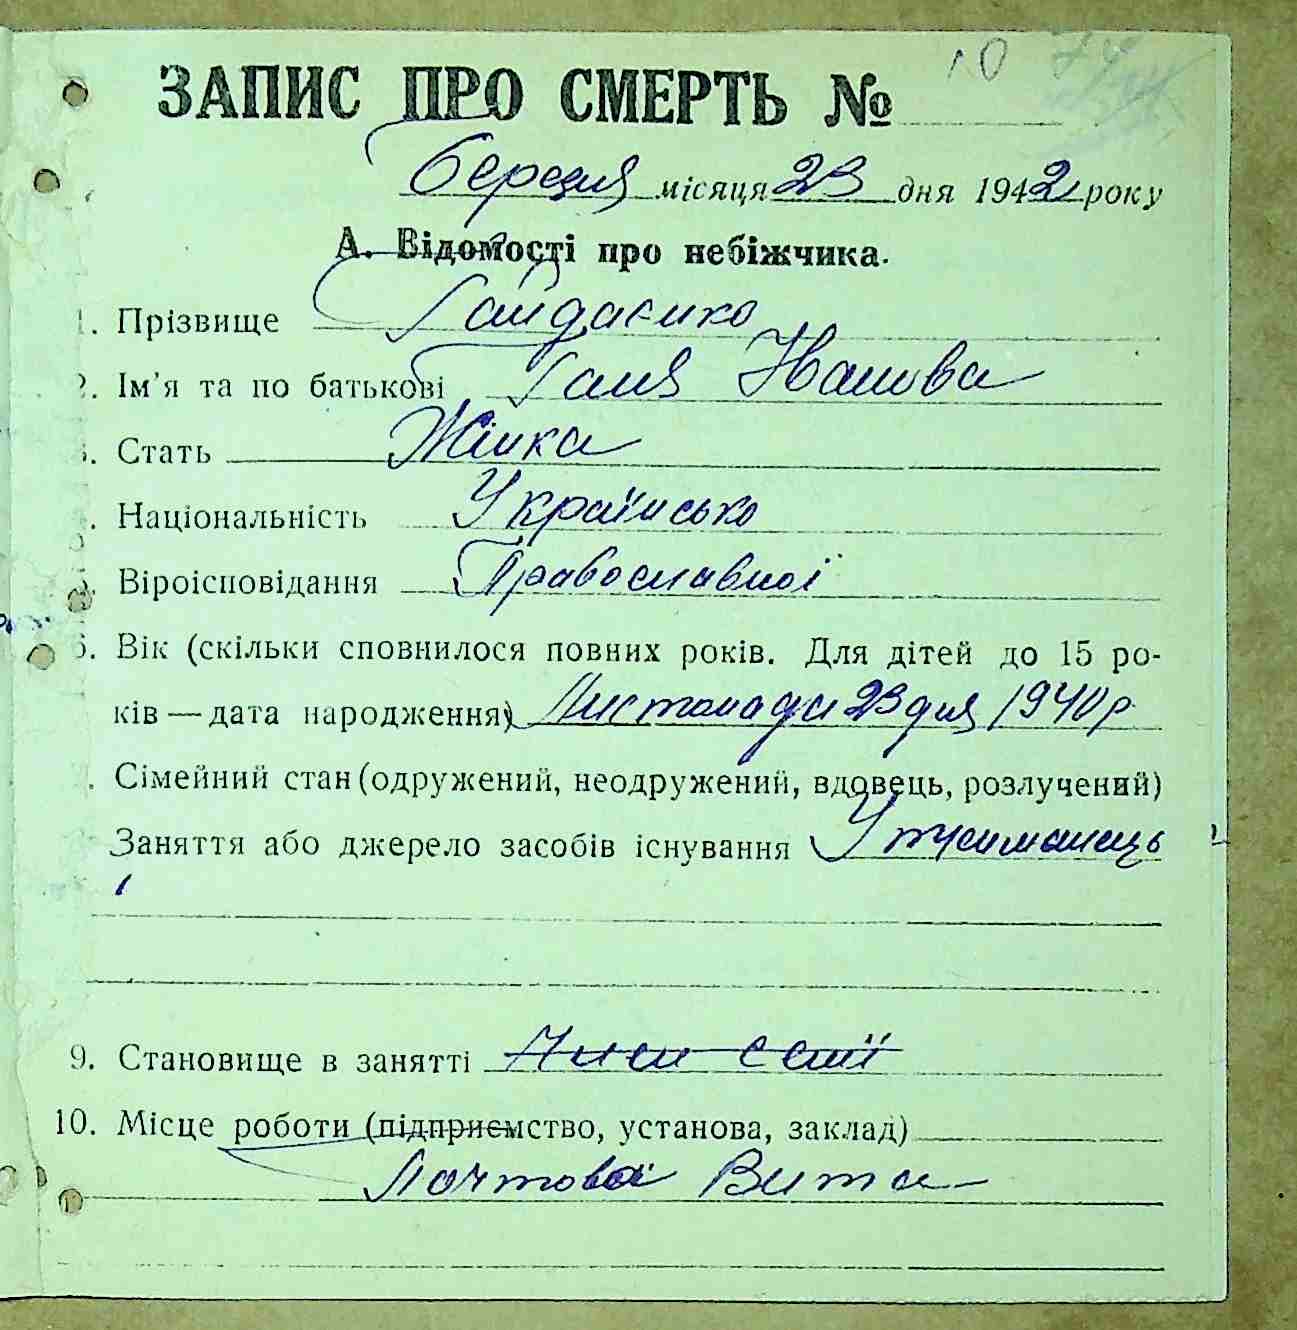 ЗАПИС ПРО СМЕРТЬ № 10
березня місяця 23 дня 1942 року
А. Відомості про небіжчика.
1. Прізвище Гайдаенко
2. Ім'я та по батькові Галя Иванова
Стать Жінка
Національність Українсько
Віроісповідання Православної
6. Вік (скільки сповнилося повних років. Для дітей до 15 ро-
ків — дата народження) Листопада 23 дня 1940 р
Сімейний стан (одружений, неодружений, вдовець, розлучений)
Заняття або джерело засобів існування Утриманець
9. Становище в занятті
10. Місце роботи (підприємство, установа, заклад)
Поштова Вита